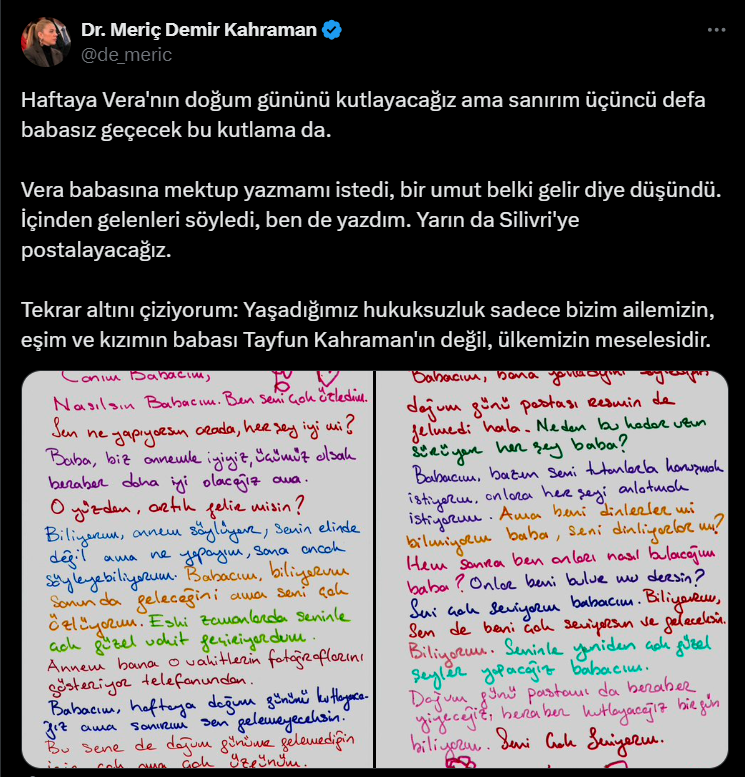 Dr. Meriç Demir Kahraman
@de_meric
Haftaya Vera'nın doğum gününü kutlayacağız ama sanırım üçüncü defa
babasız geçecek bu kutlama da.
Vera babasına mektup yazmamı istedi, bir umut belki gelir diye düşündü.
İçinden gelenleri söyledi, ben de yazdım. Yarın da Silivri'ye
postalayacağız.
Tekrar altını çiziyorum: Yaşadığımız hukuksuzluk sadece bizim ailemizin,
eşim ve kızımın babası Tayfun Kahraman'ın değil, ülkemizin meselesidir.
Canım Babacım,
Nasılsın Babacım. Ben seni çok özledim.
Sen ne yapıyorsın orada, her şey iyi mi?
Baba, biz annemle iyiyiz, üçümüz olsak
beraber daha iyi olacağız ama.
O yüzden, artık gelir misin?
Biliyorum, annem söylüyor, senin elinde
değil ama ne yapayım, sana ancak
söyleyebiliyorum. Babacım, biliyorum
sonunda geleceğini ama seni çok
özlüyorum. Eski zamanlarda seninle
çok güzel vakit geçiriyordum.
Annem bana o vakitlerin fotoğraflarını
gösteriyor telefonundan.
Babacım, haftaya doğum günümü kutlaya-
ğız ama sanırım sen gelemeyeceksin.
Bu sene de doğum günüme gelemediğin
için çok ama çok üzgünüm.
Babacım, bana
doğum günü pastası resmin de
gelmedi hala. Neden bu kadar uzun
sürüyor her şey baba?
Babacım, bazen seni tutanlarla konuşmak
istiyorum, onlara her şeyi anlatmak
istiyorum. Ama beni dinlerler mi
bilmiyorum baba, seni dinliyorlar mı?
Hem sonra ben onları nasıl bulacağım
baba? Onlar beni bulur mu dersin?
Seni çok seviyorum babacım. Biliyorum,
Sen de beni çok seviyorsun ve geleceksin.
Biliyorum. Seninle yeniden çok güzel
şeyler yapacağız babacım.
Doğum günü pastamı da beraber
yiyeceğiz, beraber kutlayacağız bir gün
biliyorum. Seni Çok Seviyorum.